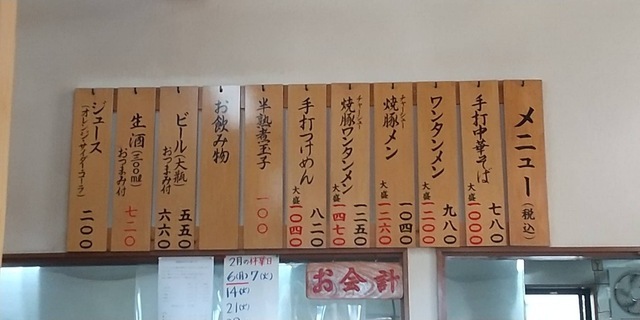 メニュー（税込）
手打中華そば 七八〇
大盛 一〇〇〇
ワンタンメン 九八〇
大盛 一二〇〇
チャーシュー
焼豚メン 一〇四〇
大盛 一二六〇
チャーシュー
焼豚ワンタンメン 一二五〇
大盛 一四七〇
手打つけめん 八二〇
大盛 一〇四〇
半熟煮玉子 一〇〇
お飲み物
ビール（大瓶） 五五〇
おつまみ付 六六〇
生酒（三〇〇ml）
おつまみ付 七二〇
ジュース
（オレンジ・サイダー・コーラ） 二〇〇
お会計
2月の休業日
6(月) 7(火)
14(火)
21(火)